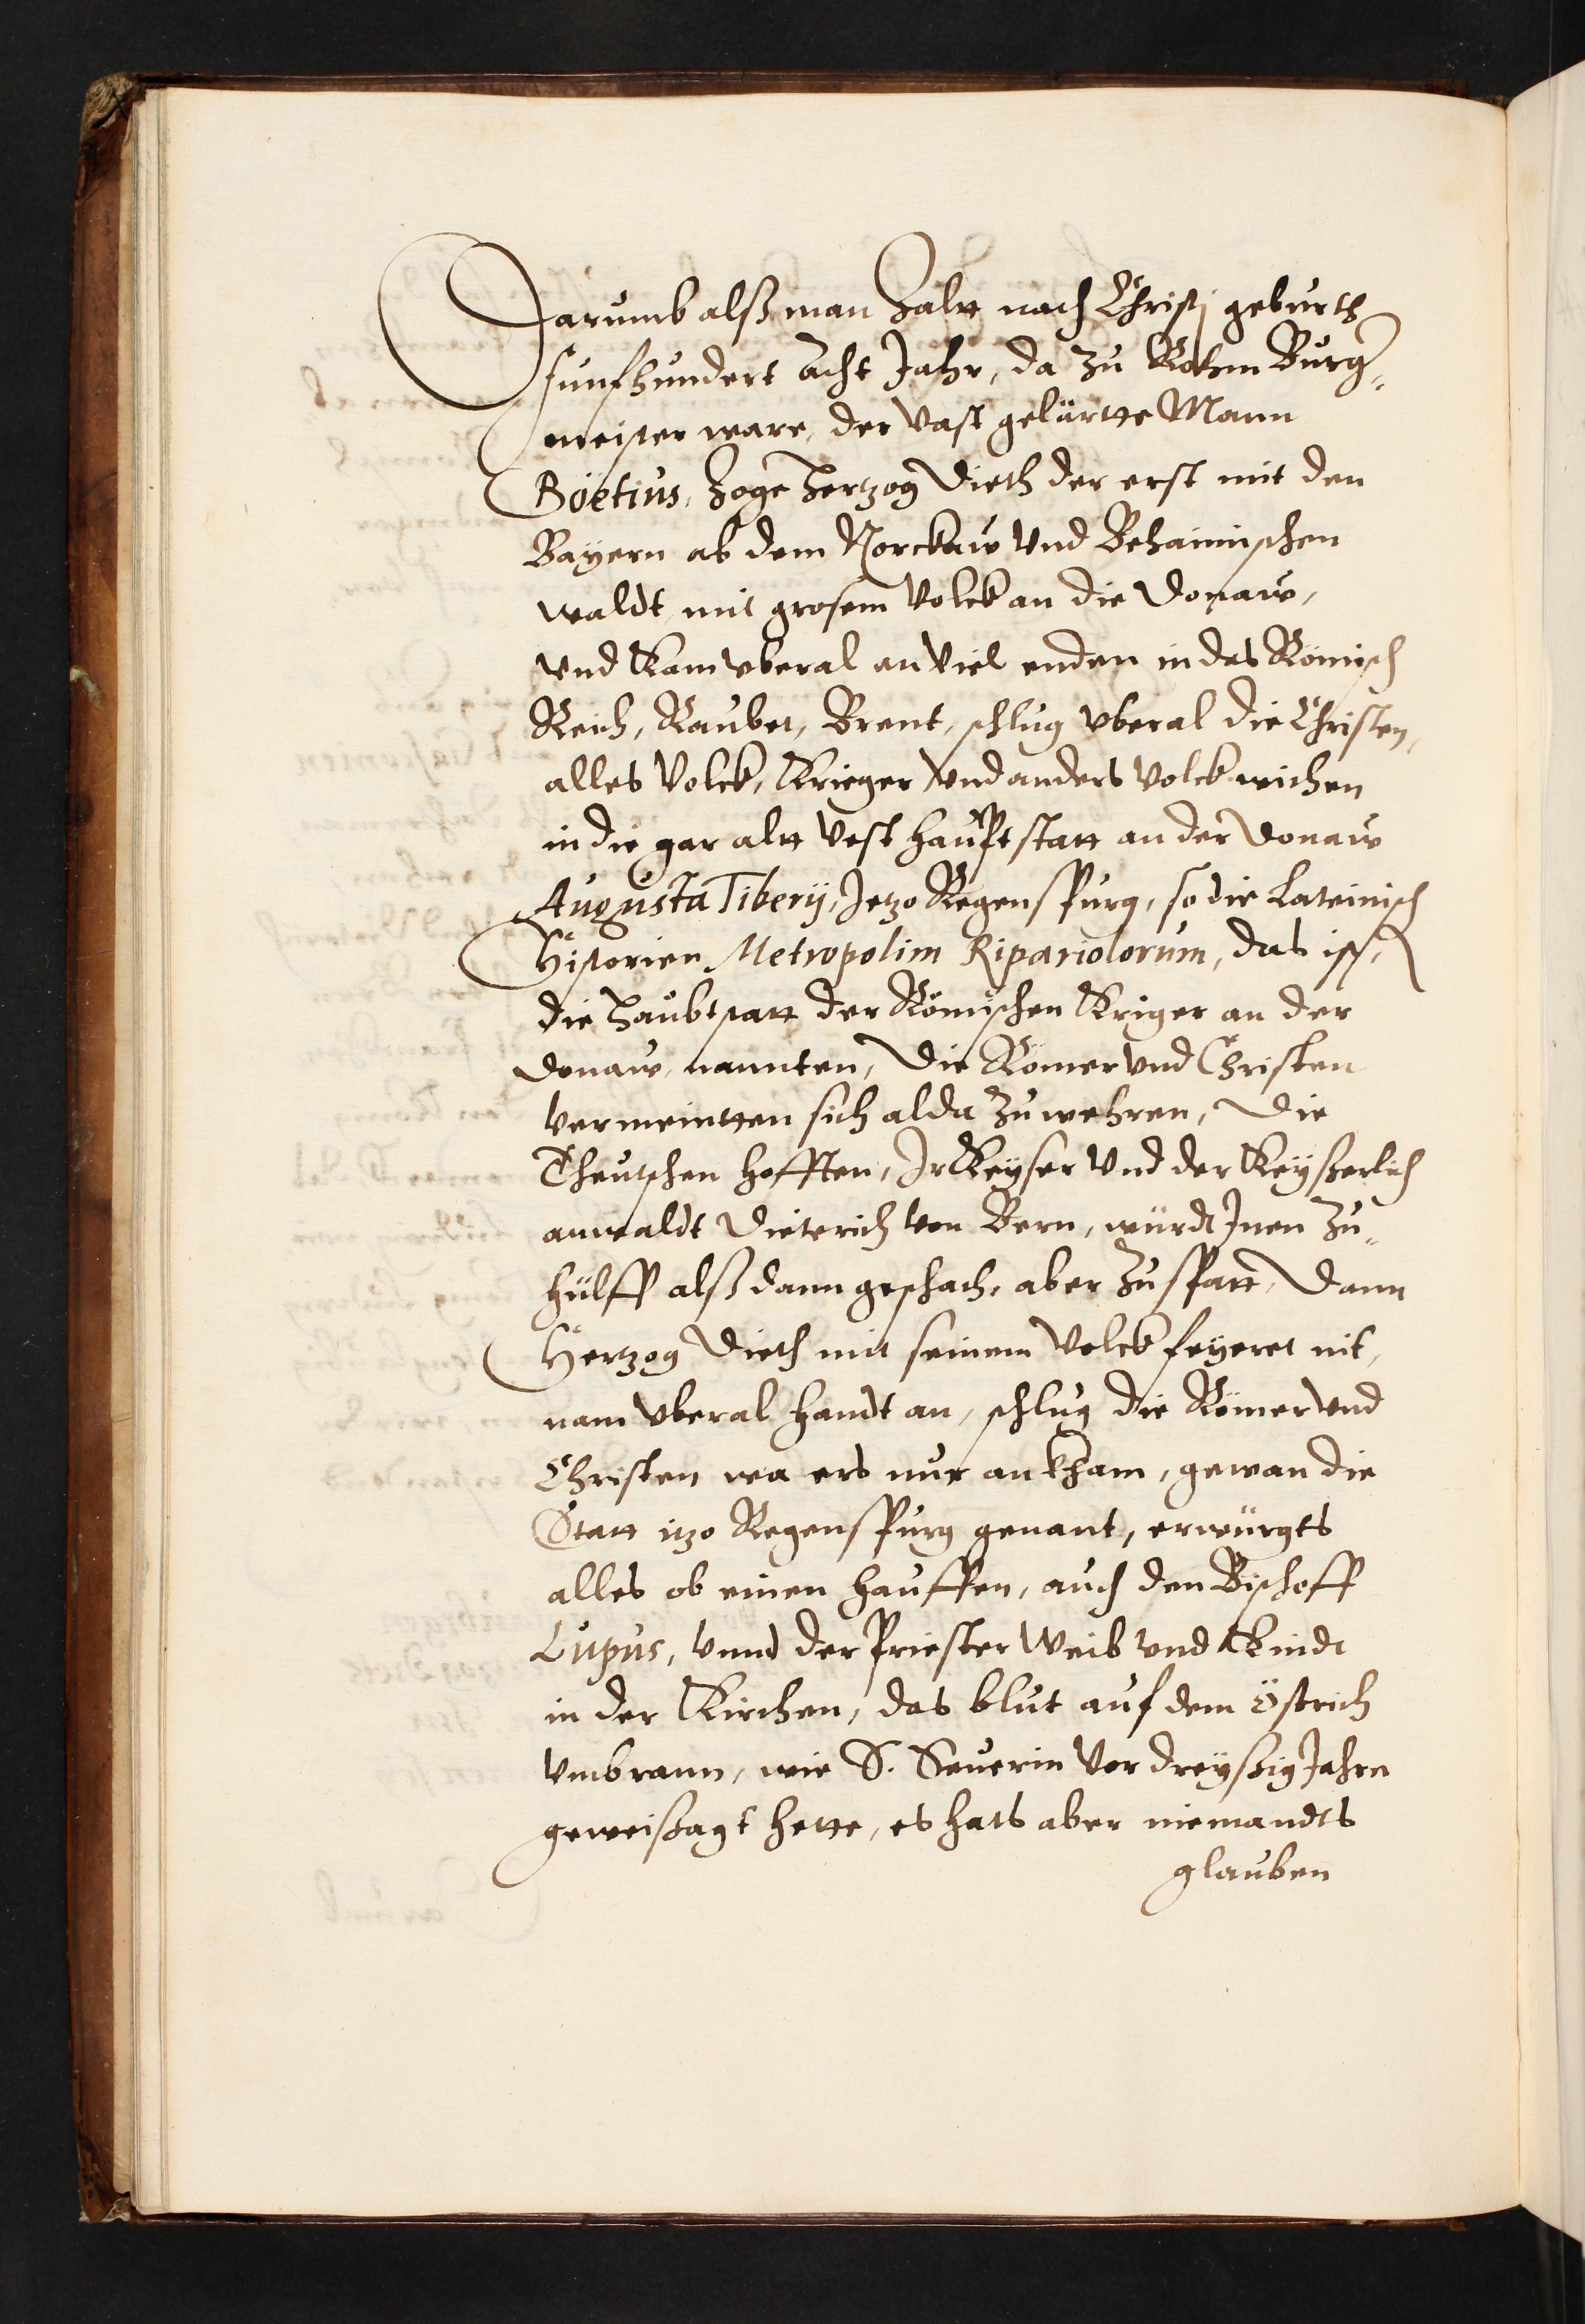 Darumb alß man Zaltt nach Christj geburth
funfhundert acht Jahr, da zu Rohm Burg„
meister ware, der vast gelärtte Mann
Böetius, zoge Hertzog Dieth der erst mit den
Bayern ab dem Norckaw vnd Behaimischen
waldt, mit grosem Volck an die Donaw,
vnd kam vberal an viel enden in das Römisch
Reich, Raubet, Brent, schlug vberal die Christen,
alles Volck, Krieger vnd anders Volck wichen
in die gar altt vest hauptstatt an der Donaw
Augusta Tiberij, Jetzo Regenspurg, so die Lateinisch
Historien Metropolim Ripariolorum, das ist,
die Haubtstatt der Römischen Kriger an der
Donaw, nannten, Die Römer vnd Christen
vermeintten sich alda zu wehren, Die
Theutschen hofften, Jr Keyser vnd der Keyßerlich
anwaldt Dieterich von Bern, würdt Jnen zu„
hülff alß dann geschach, aber zu spatt, Dann
Hertzog Dieth mit seinem Volck feyeret nit,
nam vberal handt an, schlug die Römer vnd
Christen wa ers nur an kham, gewan die
Statt itzo Regenspurg genant, erwürgts
alles ob einen hauffen, auch den Bischoff
Lupus, vnnd der Priester Weib vnd Kindt
in der Kirchen, das blut auf dem Östrich
vmbrann, wie S. Seuerin vor dreyßig Jahren
geweißagt hette, es hats aber niemandts
glauben